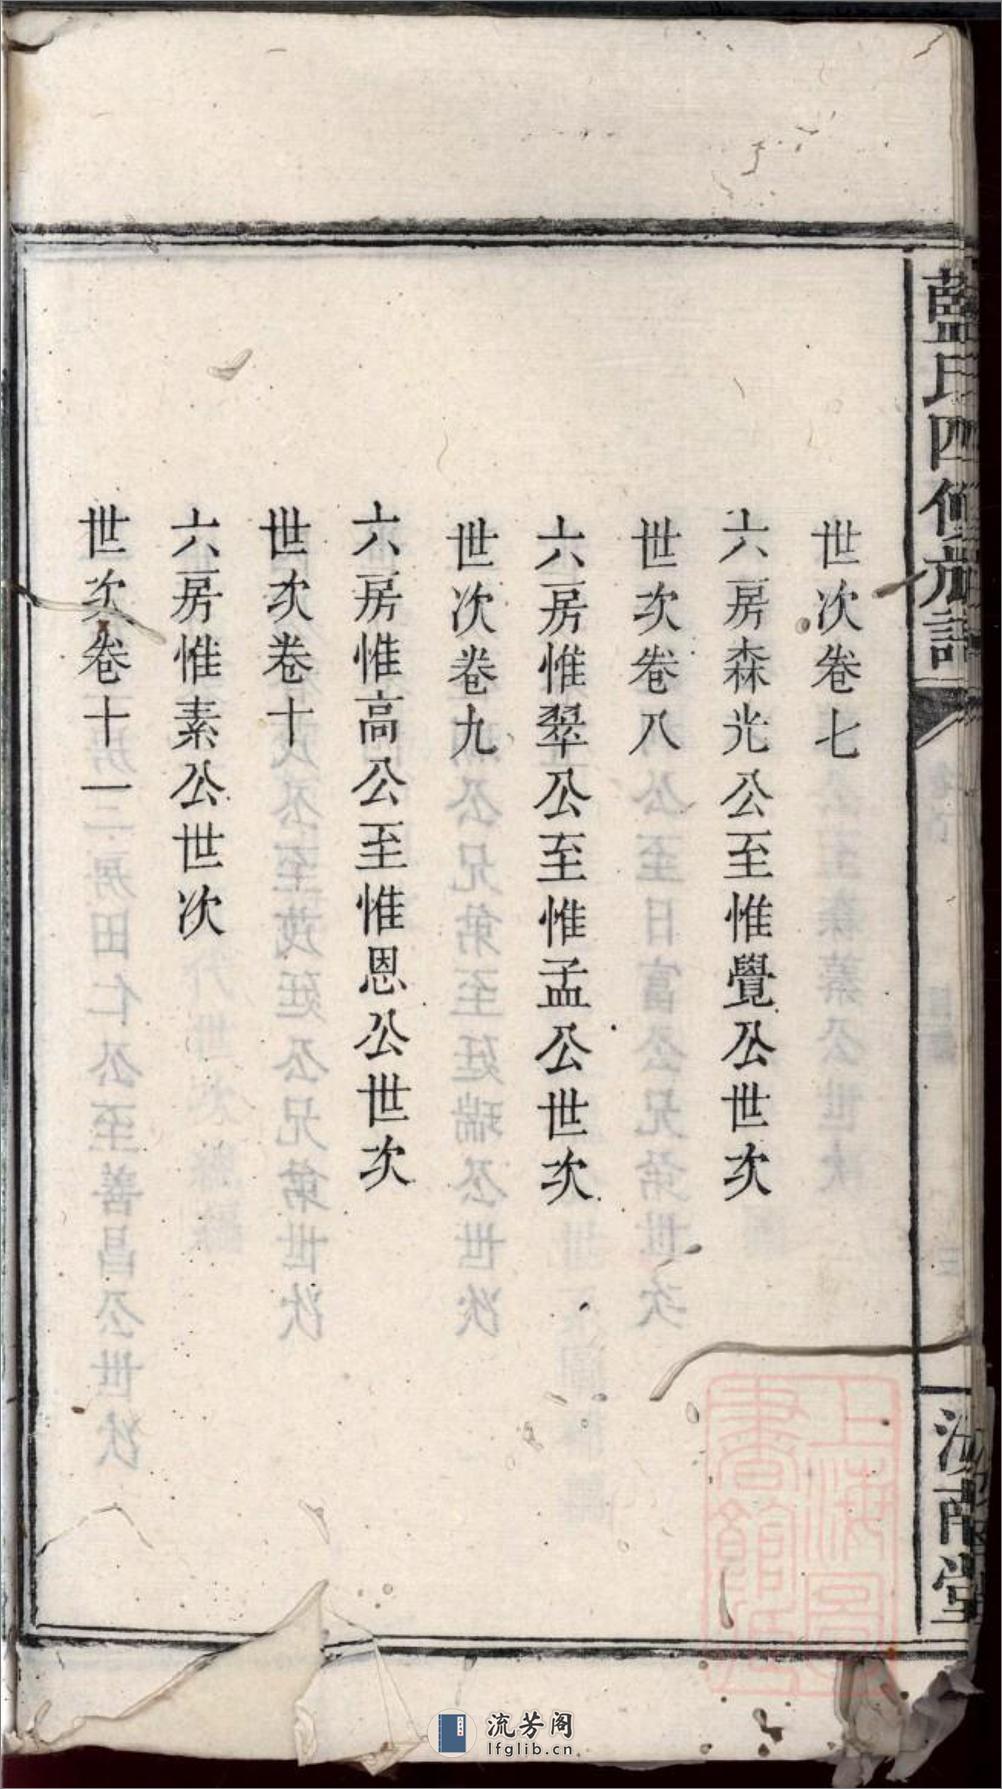 藍氏四修族譜
汝南堂
世次卷七
六房森光公至惟覺公世次
世次卷八
六房惟翠公至惟孟公世次
世次卷九
六房惟高公至惟恩公世次
世次卷十
六房惟素公世次
世次卷十一
上海圖書館藏
流芳阁
lfglib.cn